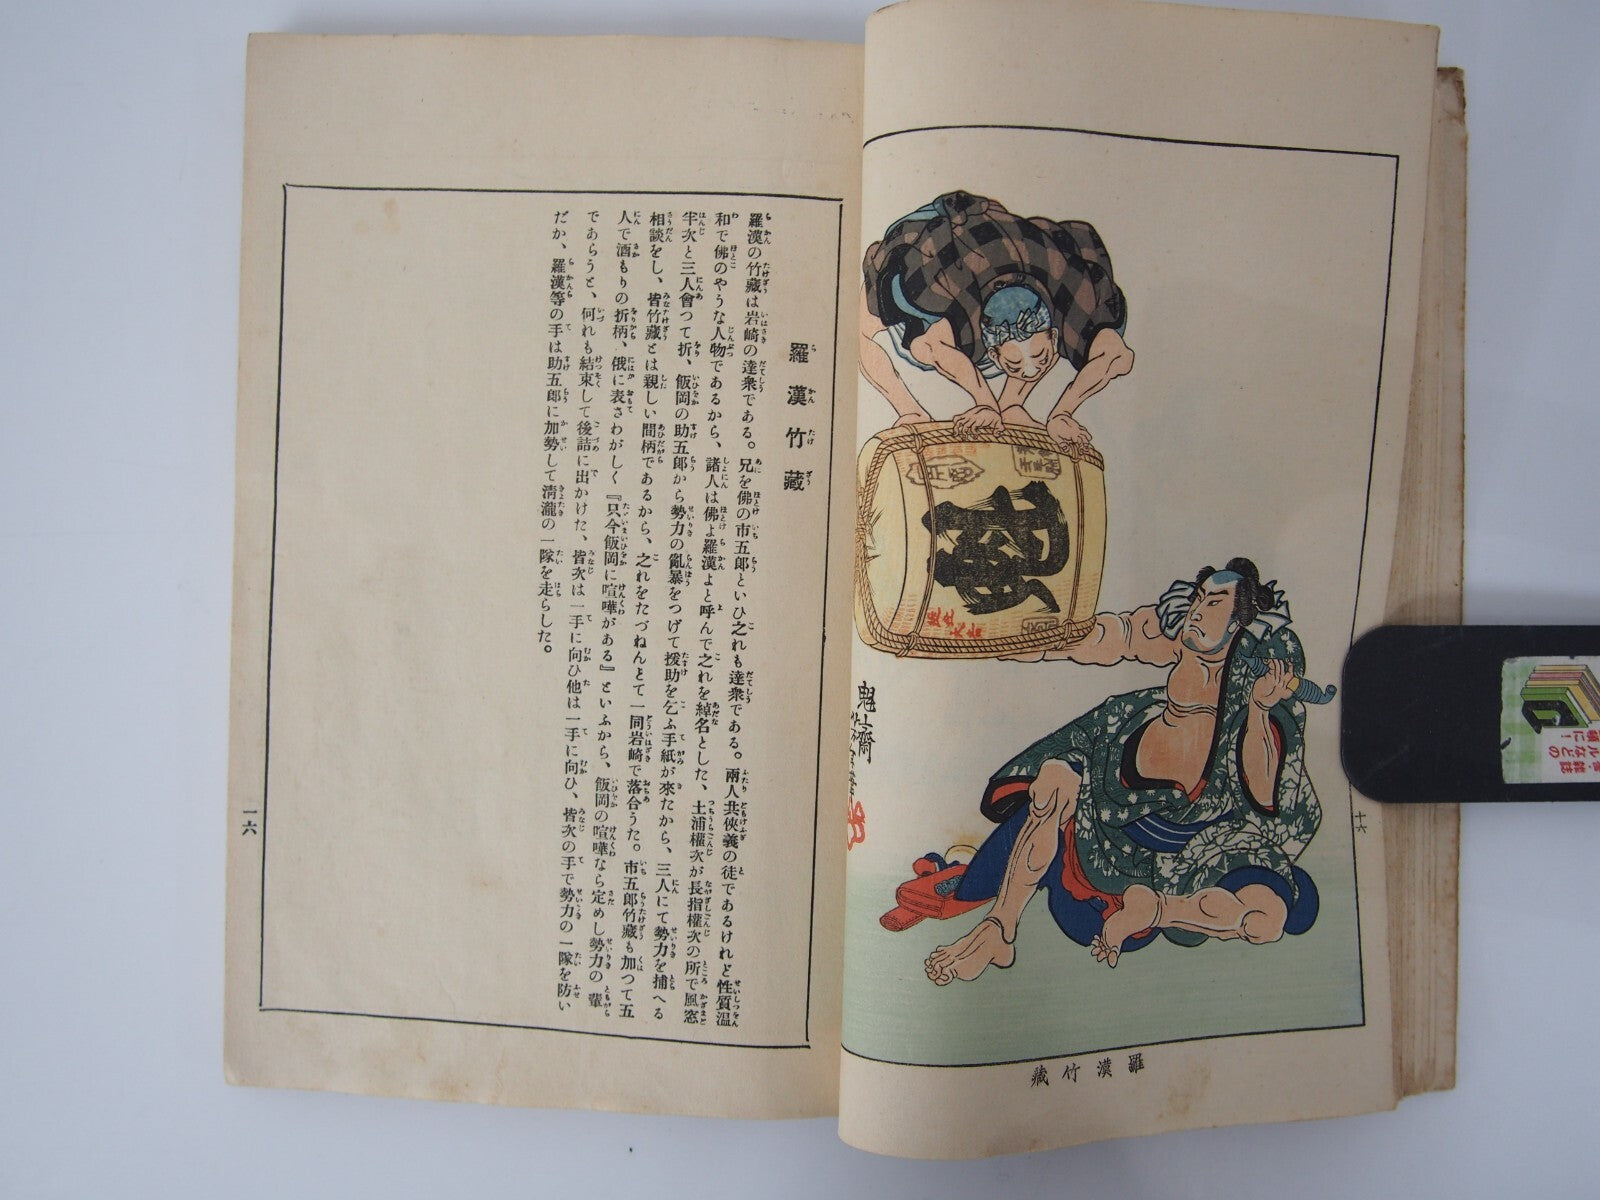 羅漢竹藏
羅漢の竹藏は岩崎の達衆である。兄を佛の市五郎といひ之れも達衆である。兩人共俠義の徒であるけれど性質溫
和で佛のやうな人物であるから、諸人は佛よ羅漢よと呼んで之れを綽名とした、土浦權次が長指權次の所で風窓
半次と三人會つて折、飯岡の助五郎から勢力の亂暴をつげて援助を乞ふ手紙が來たから、三人にて勢力を捕へる
相談をし、皆竹藏とは親しい間柄であるから、之れをたづねんとて一同岩崎で落合うた。市五郎竹藏も加つて五
人で酒もりの折柄、俄に表さわがしく『只今飯岡に喧嘩がある』といふから、飯岡の喧嘩なら定めし勢力の輩
であらうと、何れも結束して後詰に出かけた、皆次は一手に向ひ他は一手に向ひ、皆次の手で勢力の一隊を防い
だか、羅漢等の手は助五郎に加勢して淸瀧の一隊を走らした。
一六
魁
齋
十六
羅漢竹藏